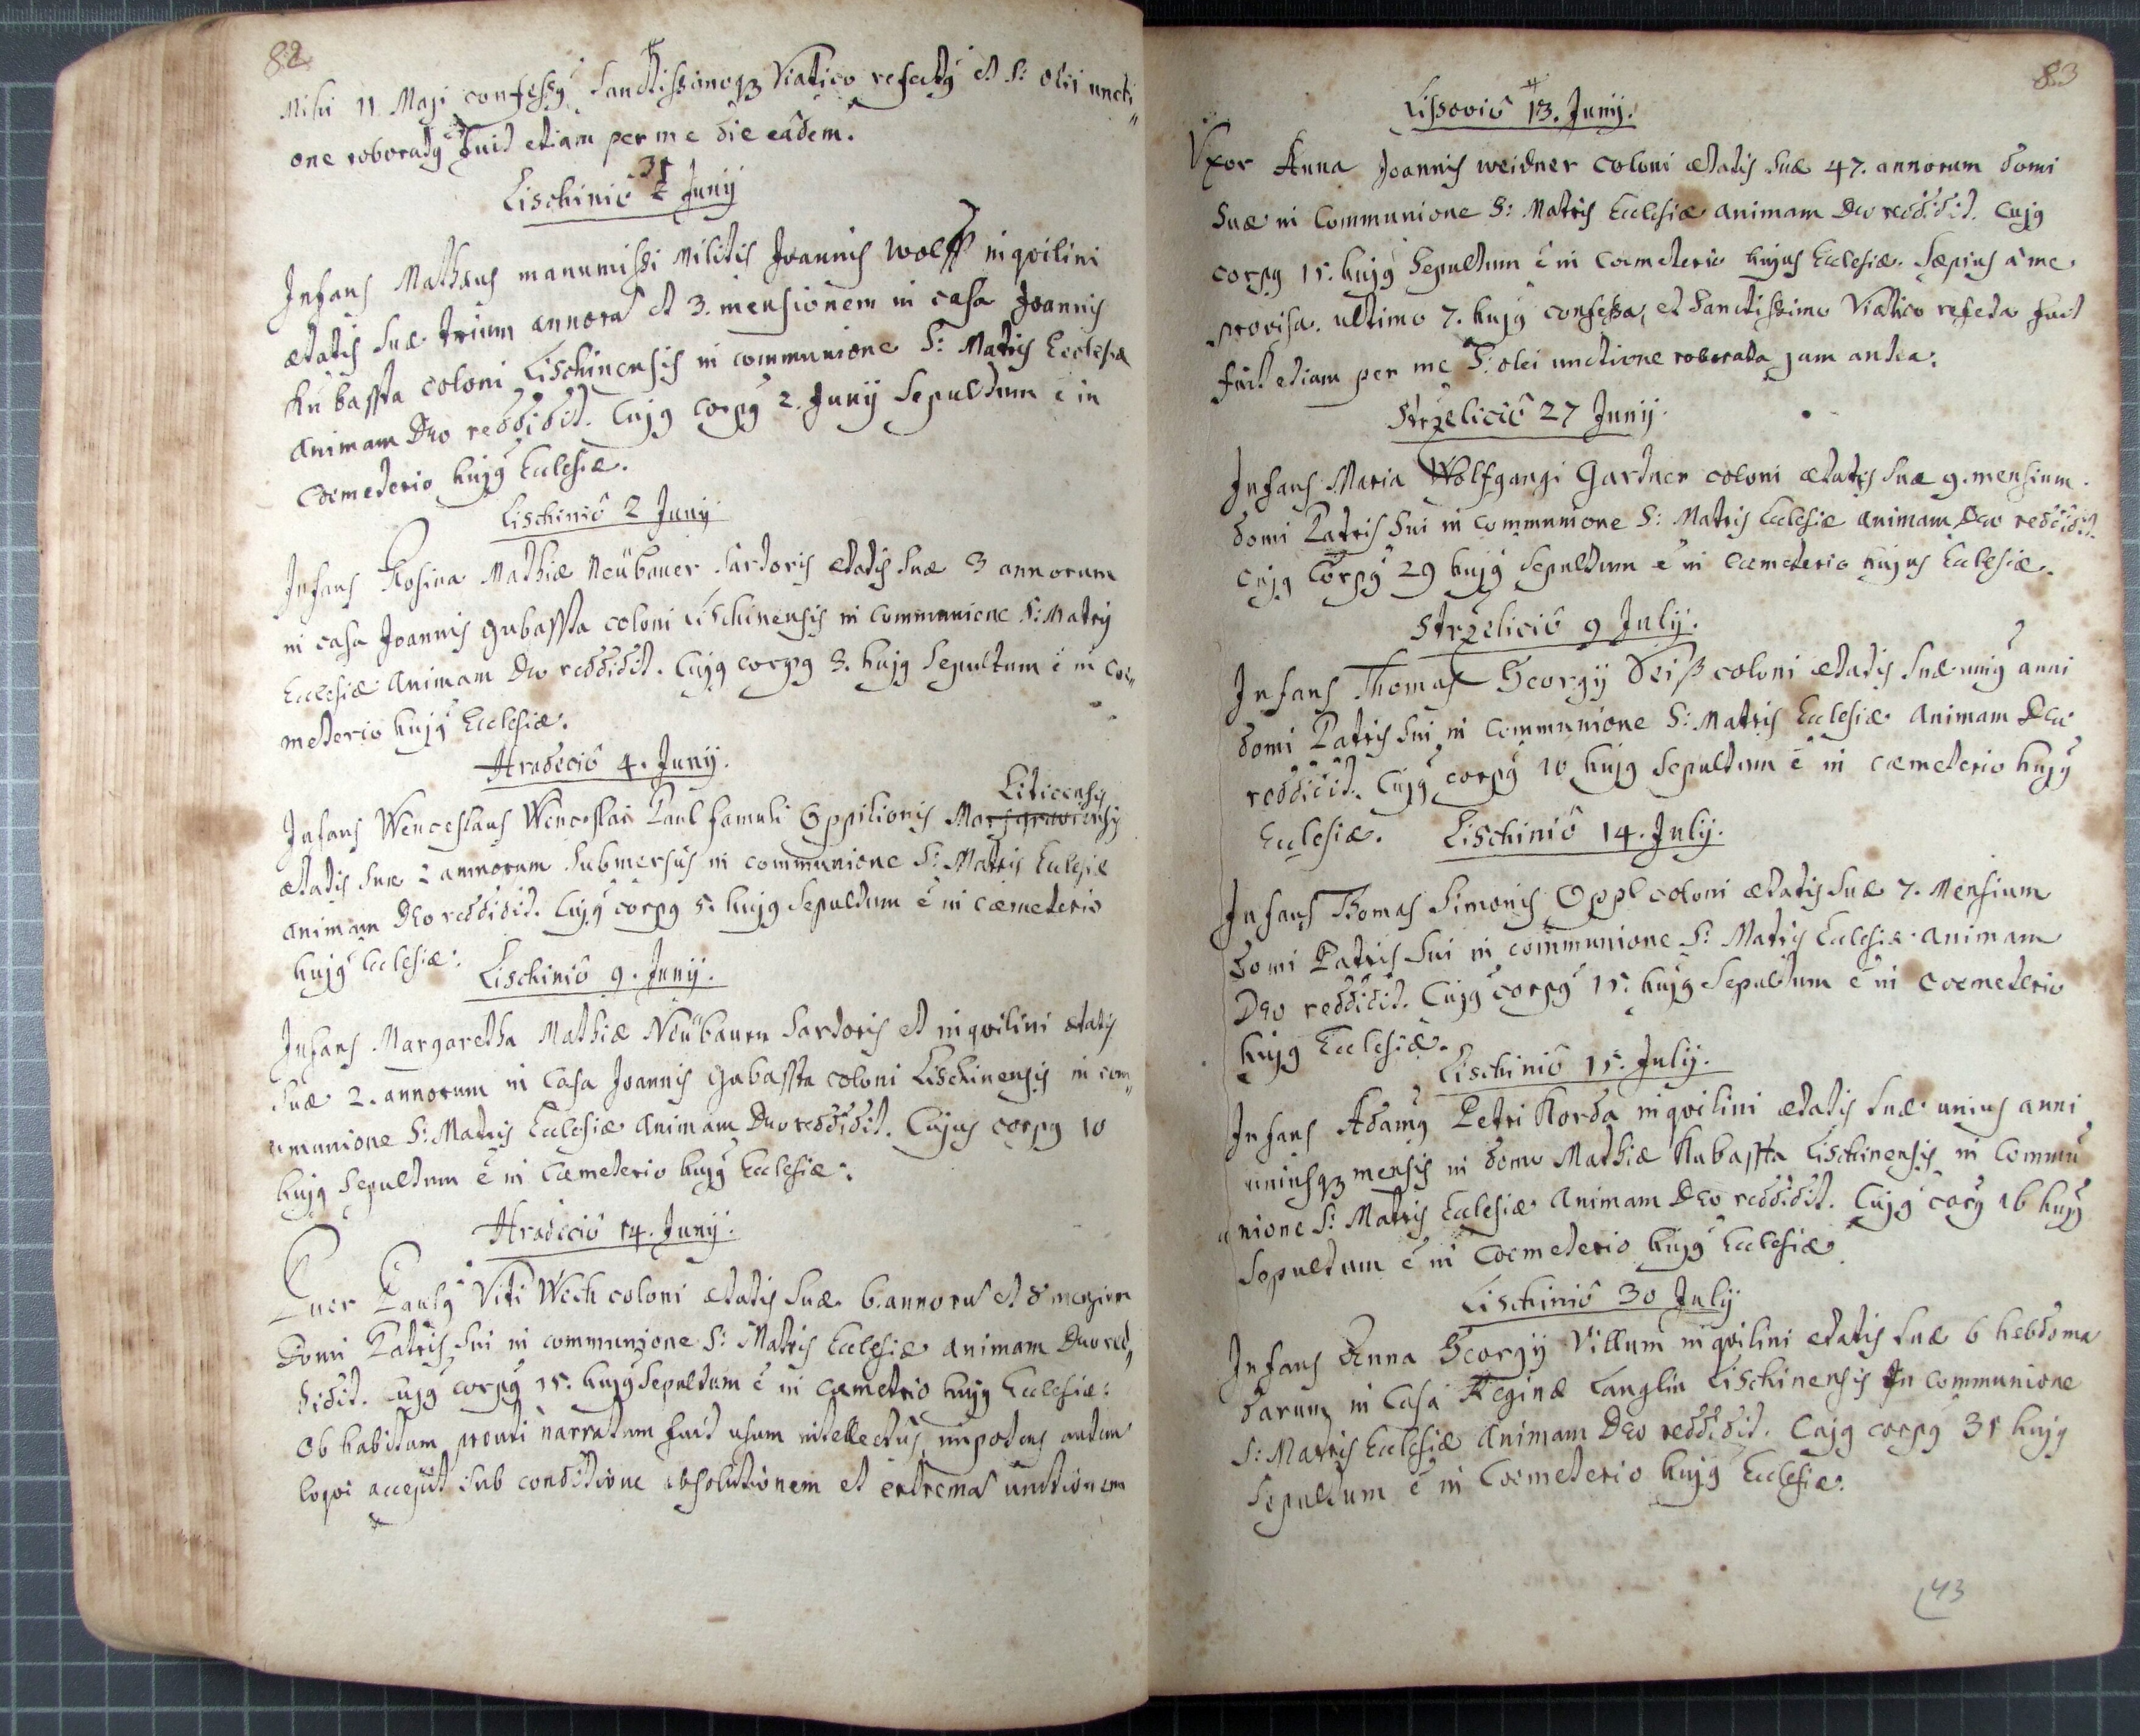 82
mihi 11 Maji confessg Sanctissimoqz Viatico refectg et S: olei uncti„
one roboratg fuit etiam per me die eâdem.
Lischiniô 31 Junij
Infans Mathæus manumissi Militis Joannis Wolff inqvilini
ætatis suæ trium annorũ et 3. mensionem in casa Joannis
Kubassta coloni Lischinensis in communione S: Matris Ecclesiæ
animam Deo reddidit. Cujg corpg 2. Junij Sepultum ẽ in
Coemeterio hujg Ecclesiæ.
Lischiniô 2 Junij
Infans Rosina Mathiæ Neübauer Sartoris ætatis suæ 3 annorum
in casa Joannis gubassta coloni Lischinensis in Communione S: Matris
Ecclesiæ animam Deo reddidit. Cujg corpg 3. hujg Sepultum ẽ in Coe„
meterio hujg Ecclesiæ.
Hradeciô 4. Junij.
Liticensis
Infans Wenceslaus Wenceslai Paul famuli Oppilionis
ætatis suæ 2 annorum Submersus in communione S: Matris Ecclesiæ
animam Deo reddidit. Cujg corpg 5. hujg Sepultum ẽ in cæmeterio
hujg Ecclesiæ.
Lischiniô 9. Junij.
Infans Margaretha Mathiæ Neübauer Sartoris et inqvilini ætatis
suæ 2. annorum in Casa Joannis Gubassta coloni Lischinensis in com„
munione S: Matris Ecclesiæ animam Deo reddidit. Cujus corpg 10
hujg Sepultum ẽ in Cæmeterio hujg Ecclesiæ.
Hradeciô 14. Junij.
Puer Paulg Viti Wech coloni ætatis suæ 6. annorũ et 8 mensium
Domi Patris sui in communione S: Matris Ecclesiæ animam Deo red„
didit. Cujg corpg 15. hujg Sepultum ẽ in cæmetrio hujg Ecclesiæ:
Ob habitum prouti narratum fuit usum intellectûs, impotens autem
loqvi accepit sub conditione absolutionem et extremã unctionem
83
Lissoviô 13. Junij.
Vxor Anna Joannis Weidner Coloni ætatis suæ 47. annorum domi
suæ in Communione S: Matris Ecclesiæ animam Deo reddidit. Cujg
corpg 15. hujg Sepultum ẽ in Coemeterio hujus Ecclesiæ. Sæpius à me
provisa. ultimo 7. hujg confessa, et Sanctissimo Viatico refecta fuit
fuit etiam per me S: olei unctione roborata jam antea.
Strzeliciô 27 Junij.
Infans Maria Wolfgangi Gartner coloni ætatis suæ 9. mensium
domi Patris sui in communione S: Matris Ecclesiæ animam Deo reddidit.
Cujg Corpg 29 hujg Sepultum ẽ in Cæmeterio hujus Ecclesiæ.
Strzeliciô 9 Julij.
Infans Thomas Georgij Seiß coloni ætatis suæ unig anni
domi Patris sui in Communione S: Matris Ecclesiæ animam Deo
reddidit. Cujg corpg 10 hujg Sepultum ẽ in cæmeterio hujg
Ecclesiæ. Lischiniô 14. Julij.
Infans Thomas Simonis Oppl coloni ætatis suæ 7. Mensium
domi Patris sui in communione S: Matris Ecclesiæ animam
Deo reddidit. Cujg corpg 15. hujg Sepultum ẽ in Coemeterio
hujg Ecclesiæ.
Lischiniô 15. Julij.
Infans Adamg Petri Korda inqvilini ætatis suæ unius anni
uniusqz mensis in domo Mathiæ Kubassta Lischinensis in Commu
nione S: Matris Ecclesiæ animam Deo reddidit. Cujg corpg 16 hujg
Sepultum ẽ in Coemeterio hujg Ecclesiæ
Lischiniô 30 Julij
Infans Anna Georgij Villum inqvilini ætatis suæ 6 hebdoma
darum in Casa Reginæ Langlin Lischinensis In communione
S: Matris Ecclesiæ animam Deo reddidit. Cujg corpg 31 hujg
Sepultum ẽ in Coemeterio hujg Ecclesiæ.
43